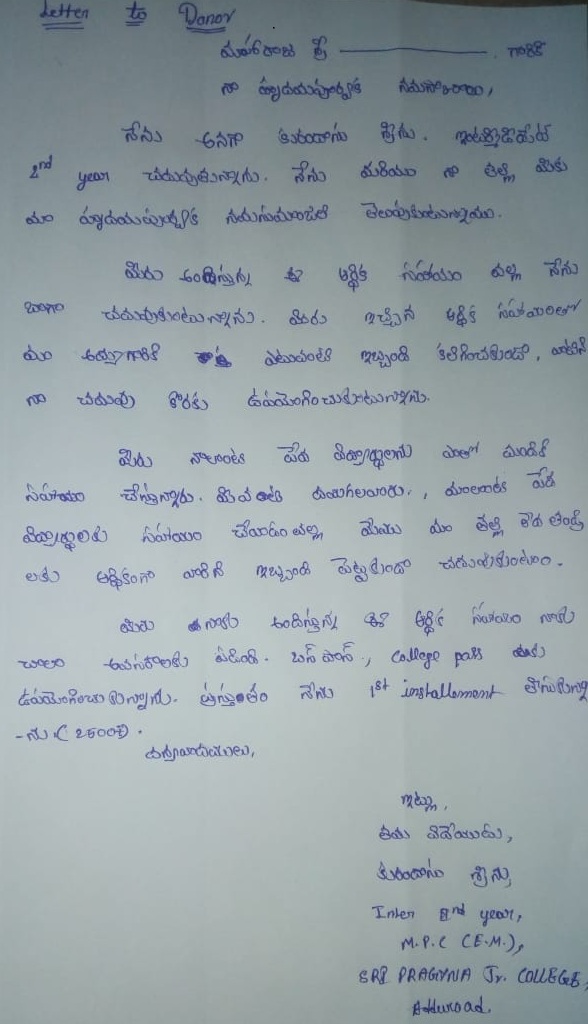 Letter to Donor
మహారాజ శ్రీ ————. గారికి
నా హృదయపూర్వక నమస్కారాలు,
నేను అనగా కురందాసు శ్రీను. ఇంటర్మీడియేట్
2nd year చదువుతున్నాను. నేను మరియు నా తల్లి మీకు
మా హృదయపూర్వక నమస్సుమాంజలి తెలుపుకుంటున్నాము.
మీరు అందిస్తున్న ఈ ఆర్థిక సహాయం వల్ల నేను
బాగా చదువుకుంటున్నాను. మీరు ఇచ్చిన ఆర్థిక సహాయంతో
మా అమ్మగారికి ఎటువంటి ఇబ్బంది కలిగించకుండా, వాటిని
నా చదువు కొరకు ఉపయోగించుకుంటున్నాను.
మీరు నాలాంటి పేద విద్యార్థులను ఎంతో మందికి
సహాయం చేస్తున్నారు. మీవంటి దయగలవారు, మాలాంటి పేద
విద్యార్థులకు సహాయం చేయడం వల్ల మేము మా తల్లి తండ్రి
లకు ఆర్థికంగా వారిని ఇబ్బంది పెట్టకుండా చదువుకుంటాం.
మీరు నాకు అందిస్తున్న ఈ ఆర్థిక సహాయం నాకు
చాలా అవసరాలకు పడింది. బస్ పాస్, College pass లకు
ఉపయోగించుకున్నాను. ప్రస్తుతం నేను 1st installement తీసుకున్నా
-ను. (2500₹).
ధన్యవాదములు,
ఇట్లు,
తమ విదేయుడు,
కురందాసు శ్రీను,
Inter 2nd year,
M.P.C (E.M.),
SRI PRAGYNA Jr. COLLEGE,
Adduroad.